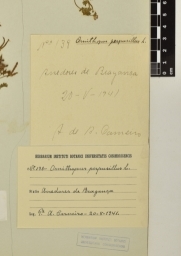 Nº 139 Ornithopus perpusillus L.
Arredores de Bragança
20-V-1941
A. de A. Carneiro
HERBARIUM INSTITUTI BOTANICI UNIVERSITATIS CONIMBRIGENSIS
Nº 139 - Ornithopus perpusillus L.
Arredores de Bragança
Pe A. Carneiro - 20-V-1941.